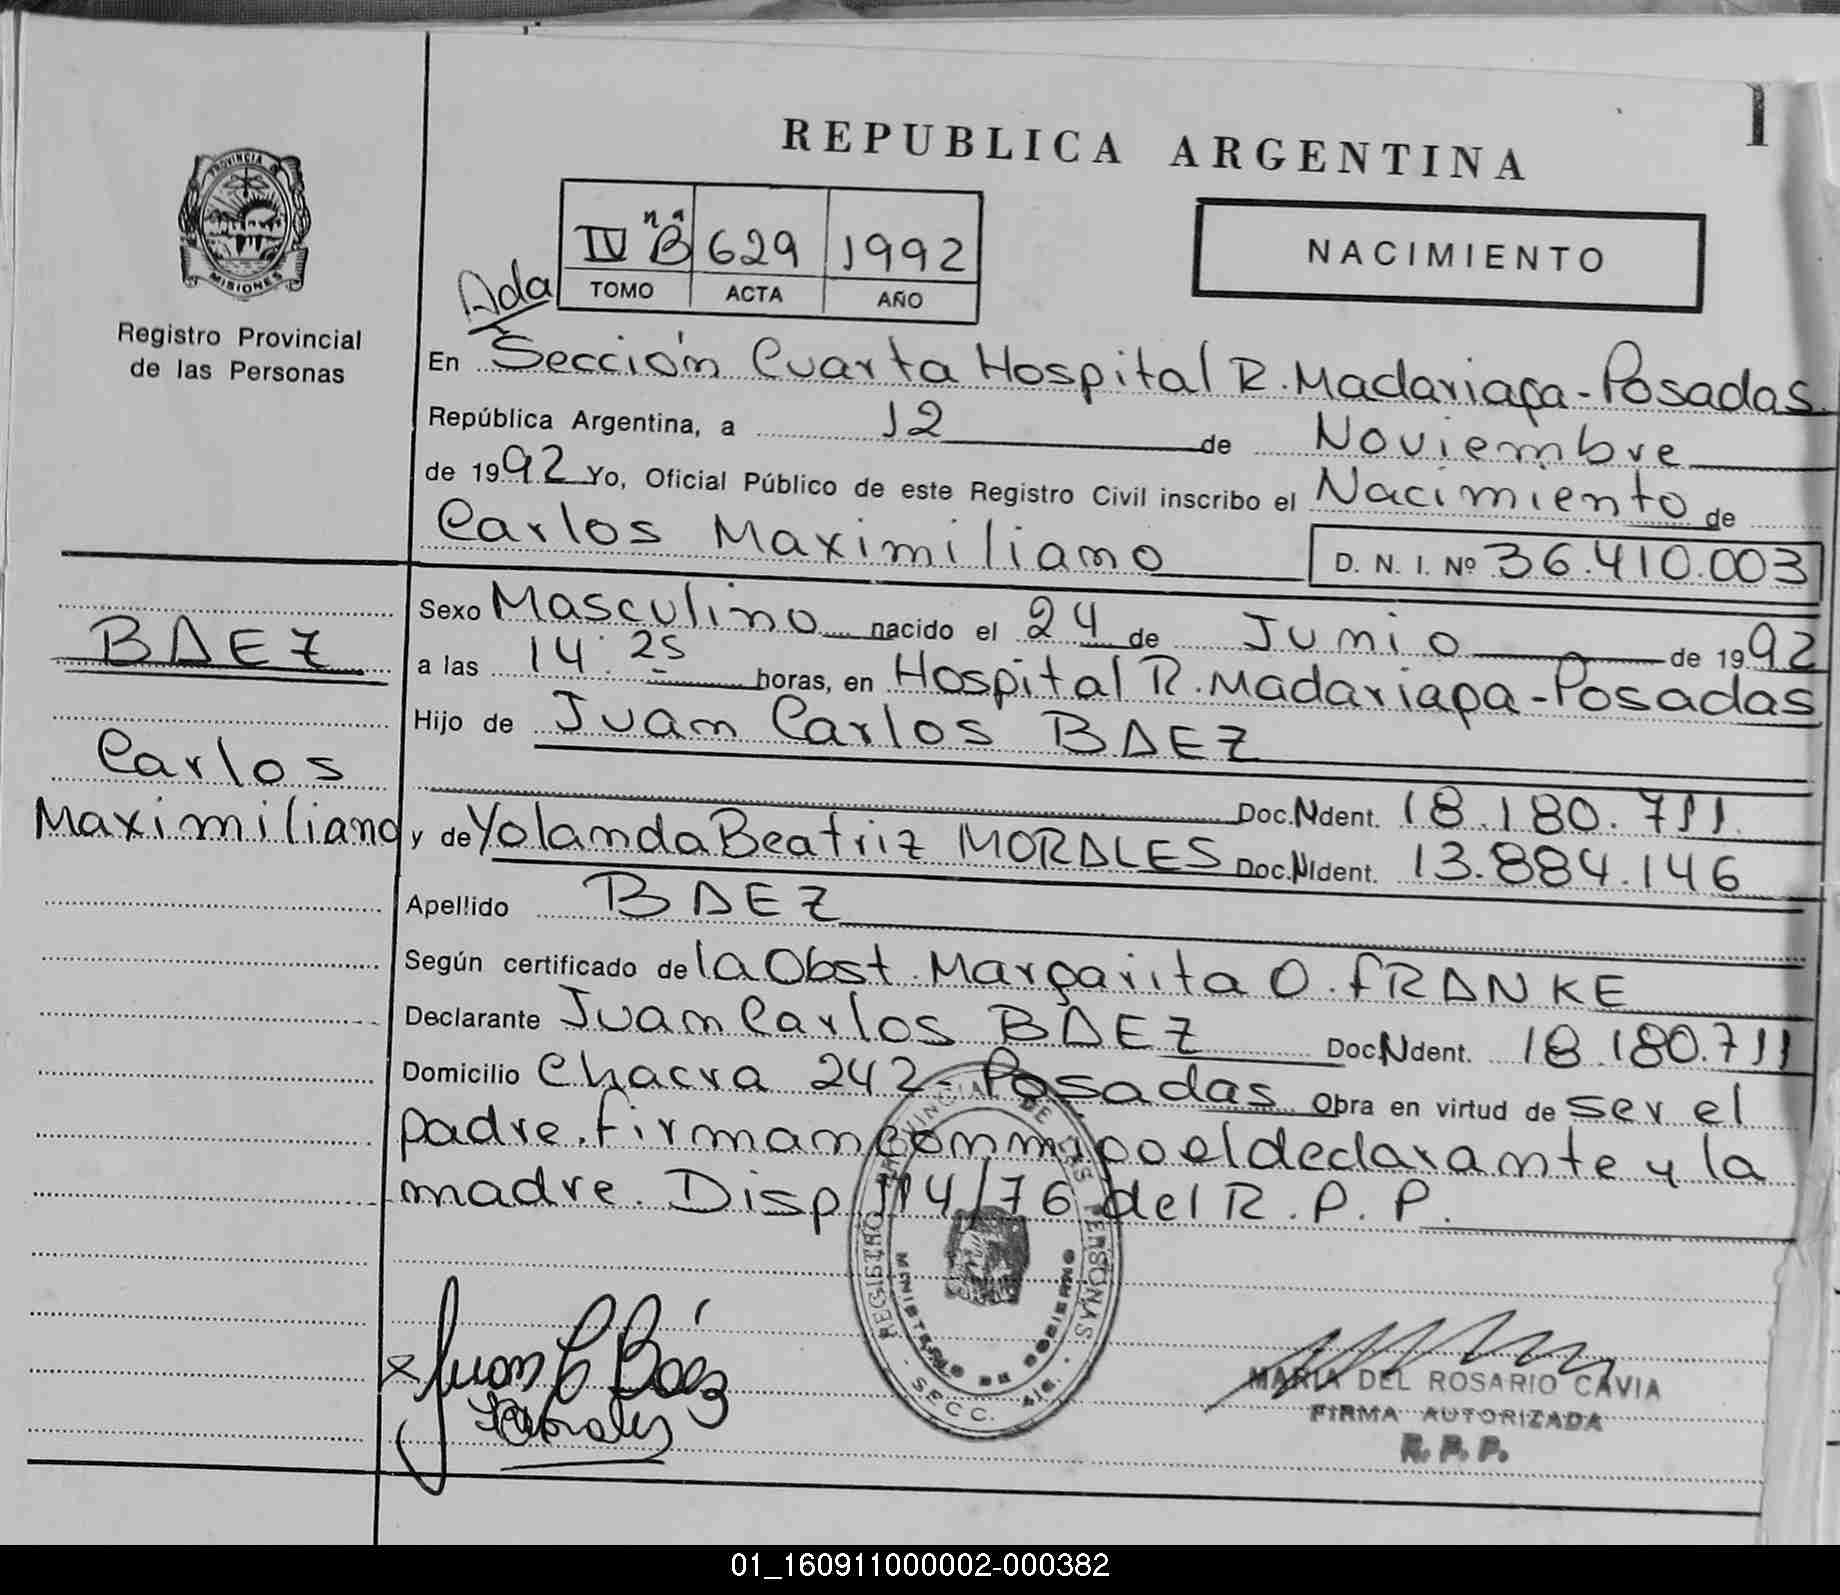 REPUBLICA ARGENTINA
PROVINCIA DE
MISIONES
Registro Provincial
de las Personas
IV nª B 629 1992
TOMO ACTA AÑO
NACIMIENTO
Ada
En Sección Cuarta Hospital R. Madariaga-Posadas
República Argentina, a 12 de Noviembre
de 1992 Yo, Oficial Público de este Registro Civil inscribo el Nacimiento de
Carlos Maximiliano D. N. I. Nº 36.410.003
BAEZ
Carlos
Maximiliano
Sexo Masculino nacido el 24 de Junio de 1992
a las 14:25 horas, en Hospital R. Madariaga-Posadas
Hijo de Juan Carlos BAEZ
Doc.Ndent. 18.180.711
y de Yolanda Beatriz MORALES Doc.NIdent. 13.884.146
Apellido BAEZ
Según certificado de la Obst. Margarita O. FRANKE
Declarante Juan Carlos BAEZ Doc.Ndent. 18.180.711
Domicilio Chacra 242- Posadas Obra en virtud de ser el
padre. firman conmigo el declarante y la
madre. Disp 114/76 del R. P. P.
REGISTRO PROVINCIAL DE LAS PERSONAS
MINISTERIO DE GOBIERNO
SECC. 4ta.
x Juan C Báez
Morales
MARIA DEL ROSARIO CAVIA
FIRMA AUTORIZADA
R. P. P.
01_160911000002-000382